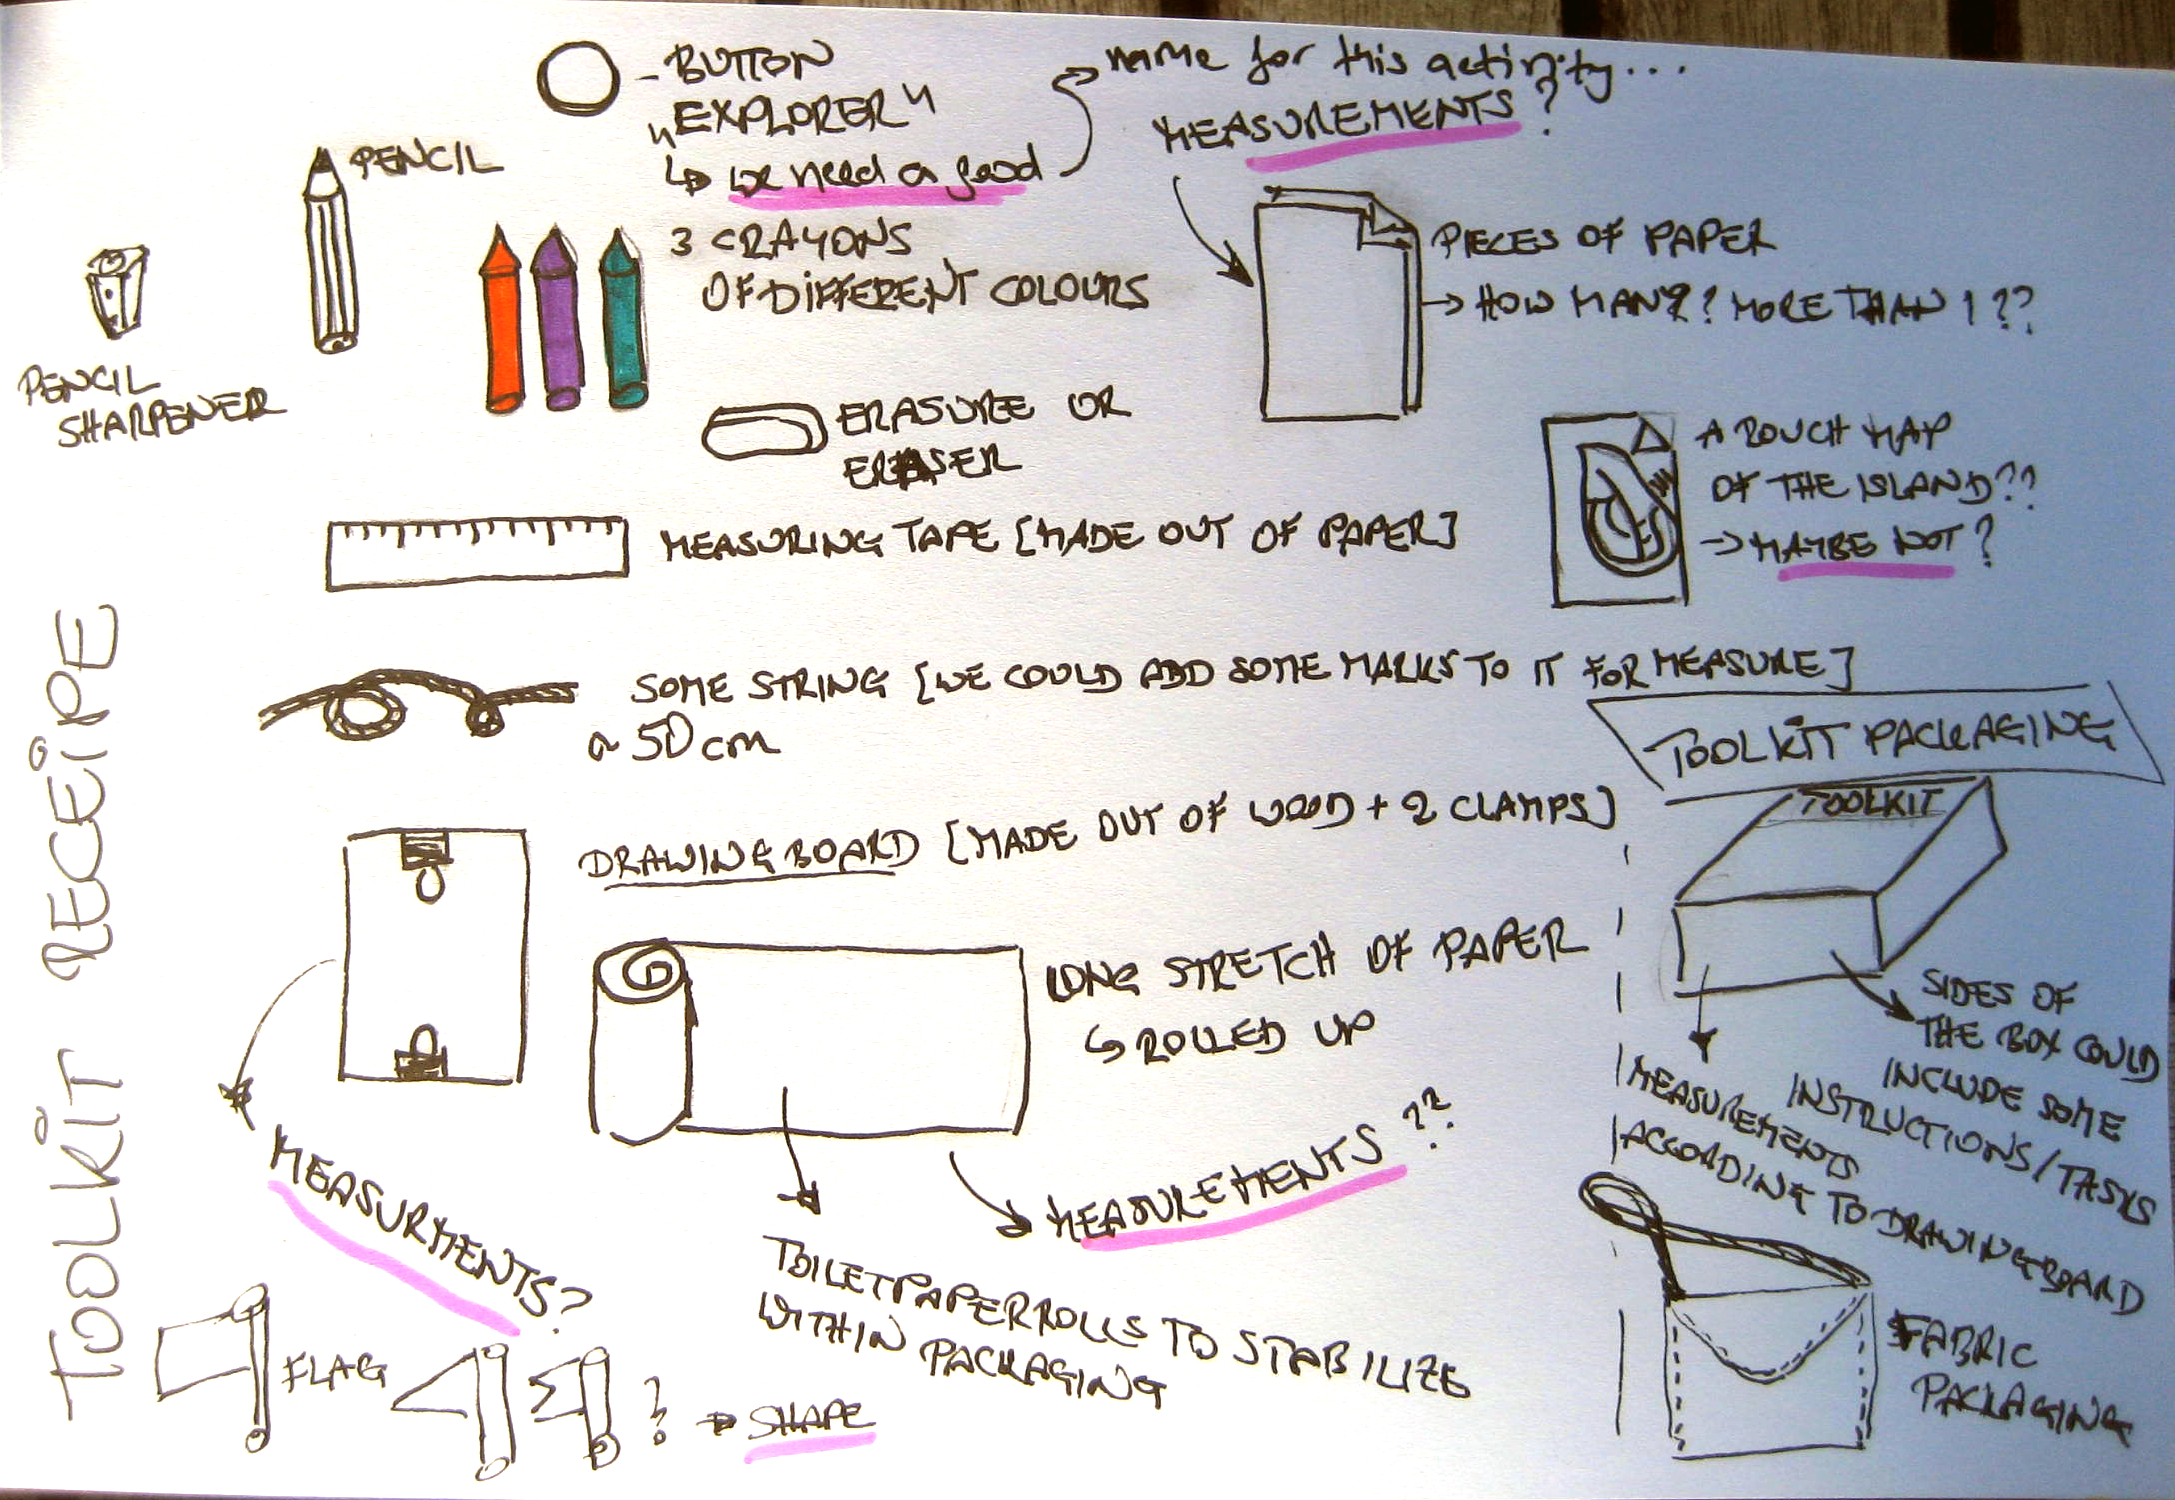 TOOLKIT RECEIPE
- BUTTON
"EXPLORER"
↳ we need a good
name for this activity...
PENCIL
PENCIL
SHARPENER
3 CRAYONS
OF DIFFERENT COLOURS
MEASUREMENTS?
PIECES OF PAPER
→ HOW MANY? MORE THAN 1??
ERASURE OR
ERASER
A ROUCH MAP
OF THE ISLAND??
→ MAYBE NOT?
MEASURING TAPE [MADE OUT OF PAPER]
SOME STRING [WE COULD ADD SOME MARKS TO IT FOR MEASURE]
a 50 cm
DRAWING BOARD [MADE OUT OF WOOD + 2 CLAMPS]
MEASURMENTS?
LONG STRETCH OF PAPER
↳ ROLLED UP
MEASUREMENTS??
TOILETPAPERROLLS TO STABILIZE
WITHIN PACKAGING
FLAG
? → SHAPE
TOOLKIT PACKAGING
TOOLKIT
SIDES OF
THE BOX COULD
INCLUDE SOME
INSTRUCTIONS/TASKS
MEASUREMENTS
ACCORDING TO DRAWINGBOARD
FABRIC
PACKAGING